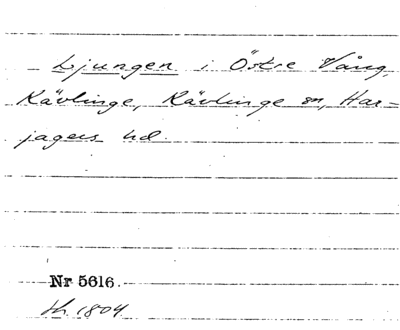 Ljungen i Östre Vång,
Kävlinge, Kävlinge sn, Har-
jagers hd.
Nr 5616.
sk. 1804